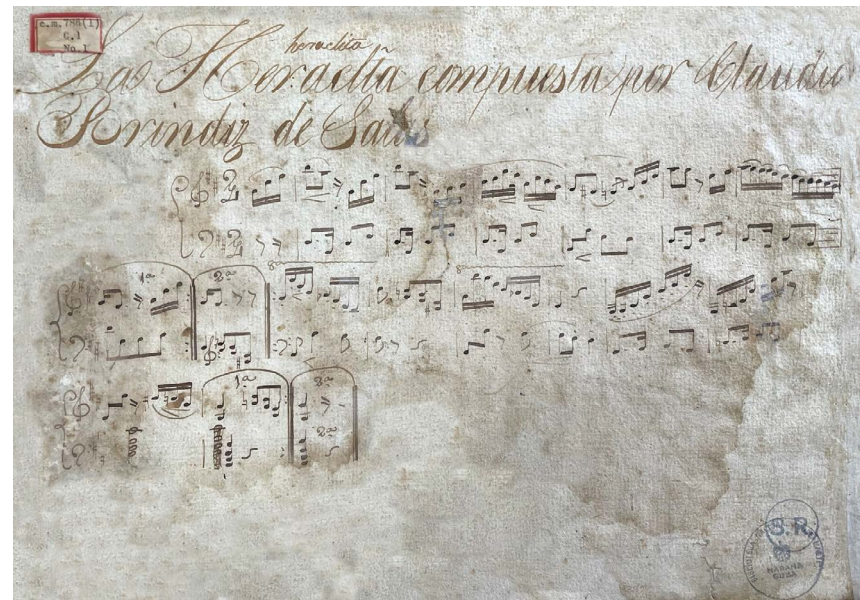 c.m. 786(1)
C.1
No.1
heraclita
Las Heraclita compuesta por Claudio
Brindiz de Salas
1ª 2ª
8ª 8ª
1ª 2ª
2ª
S.R.
HABANA
CUBA